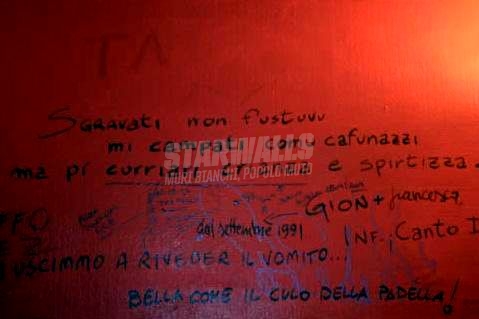 TA
SGRAVATI non fustuvu
mi campati comu cafunazzi
ma pi curriri e spirtizza.
STARWALLS
MURI BIANCHI, POPOLO MUTO
GION + francesca
dal settembre 1991
INF. Canto
USCIMMO A RIVEDER IL VOMITO...
BELLA COME IL CULO DELLA PADELLA!